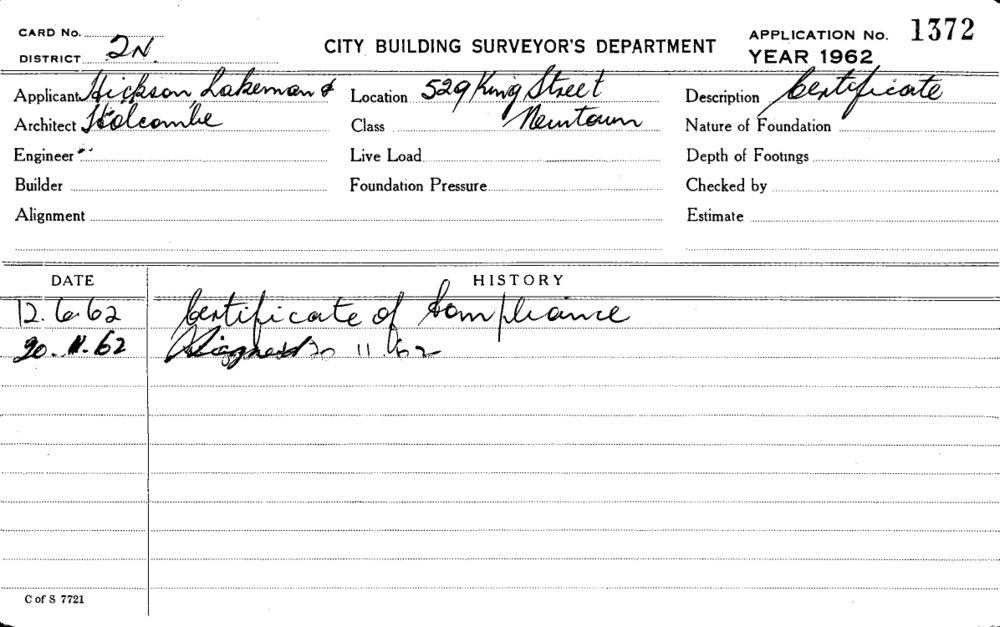 CARD No.
DISTRICT 2N.
CITY BUILDING SURVEYOR'S DEPARTMENT
APPLICATION No. 1372
YEAR 1962
Applicant Hickson Lakeman &
Location 529 King Street
Description Certificate
Architect Holcombe
Class Newtown
Nature of Foundation
Engineer "
Live Load
Depth of Footings
Builder
Foundation Pressure
Checked by
Alignment
Estimate
DATE HISTORY
12.6.62 Certificate of Compliance
20.11.62 Signed 20 11 62
C of S 7721